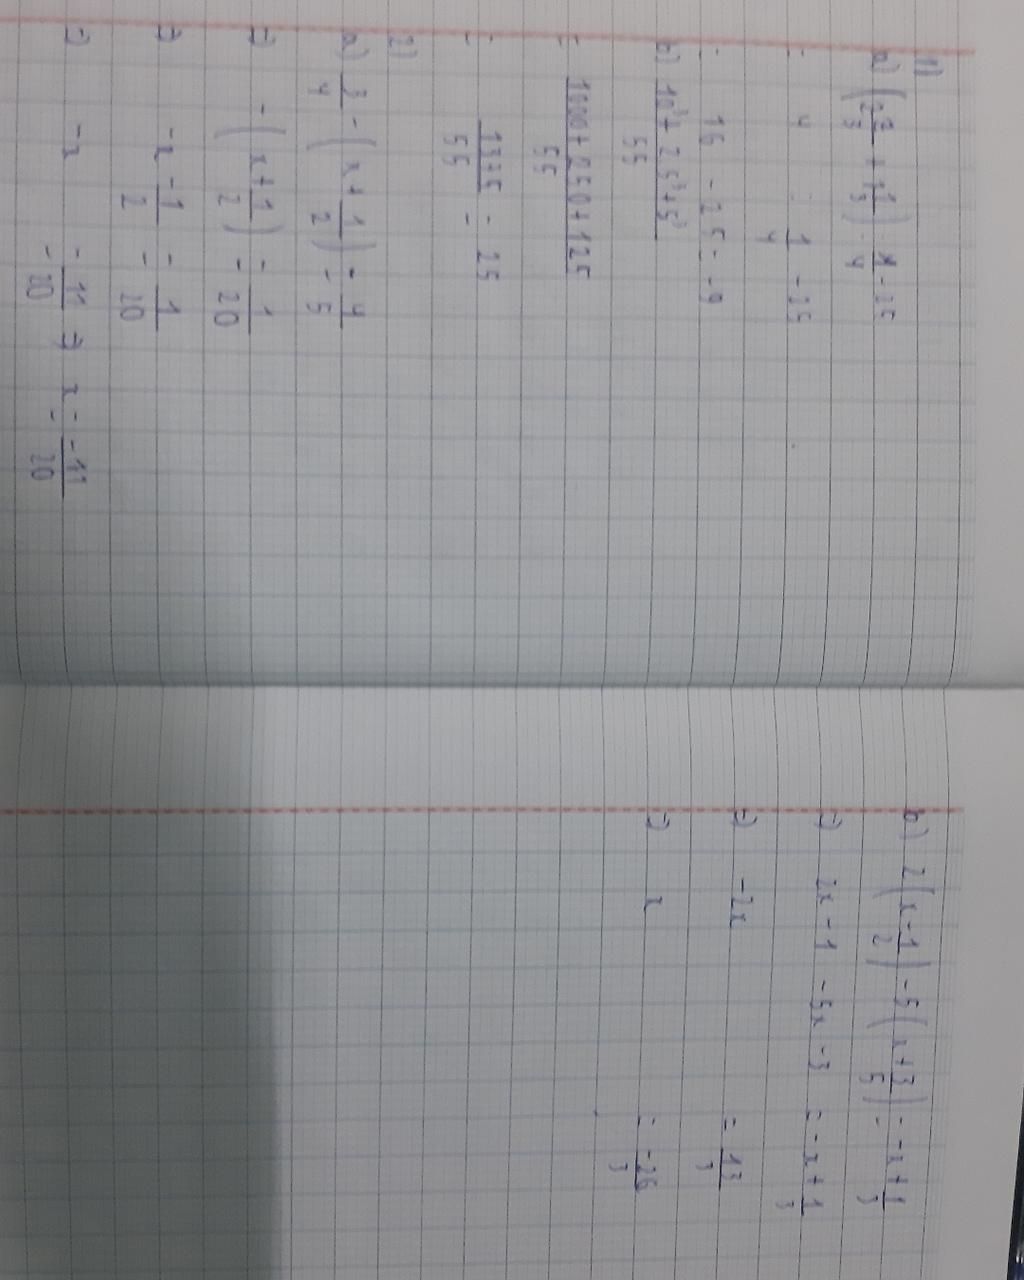 1)
a) (2 2/3 + 1 1/3) : 1/4 - 25
= 4 : 1/4 - 25
= 16 - 25 = -9
b) 10³ + 2.5³ + 5³ / 55
= 1000 + 250 + 125 / 55
= 1375 / 55 = 25
2)
a) 3/4 - (x + 1/2) = 4/5
=) - (x + 1/2) = 1/20
=) -x - 1/2 = 1/20
=) -x = 11/20 =) x = -11/20
b) 2(x - 1/2) - 5(x + 3/5) = -x + 1/3
=) 2x - 1 - 5x - 3 = -x + 1/3
=) -2x = 13/3
=) x = -26/3